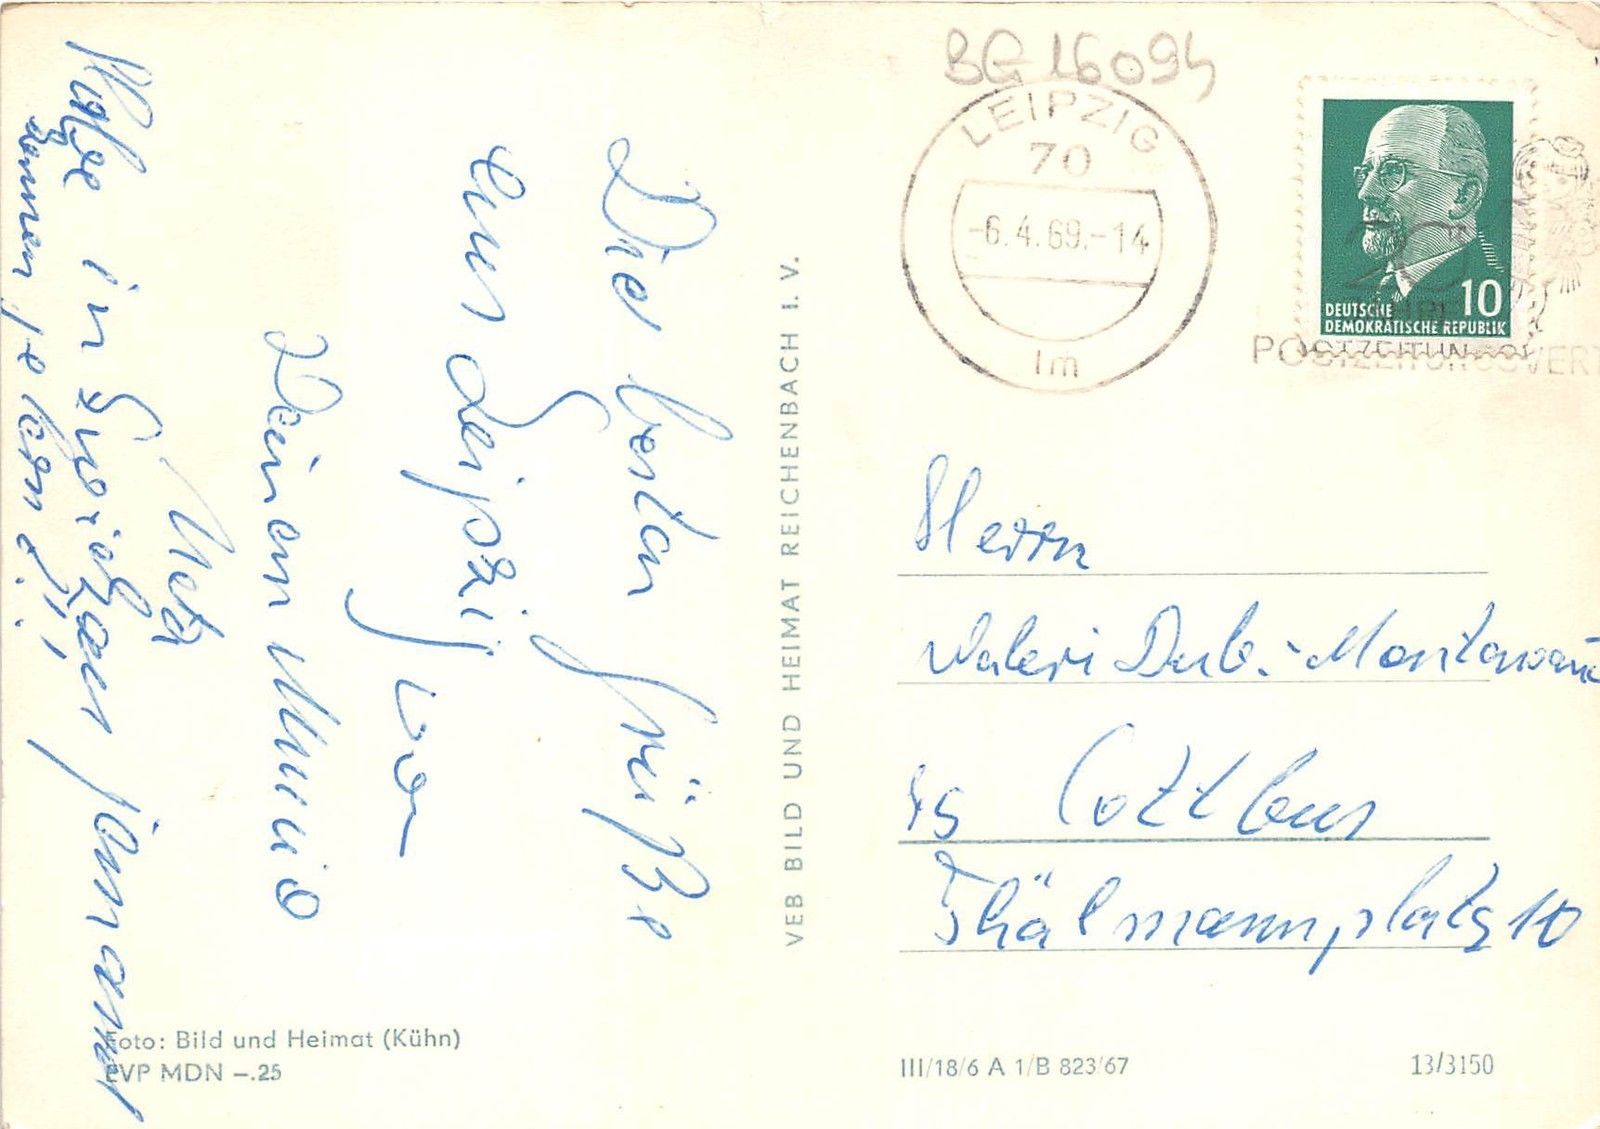 Die besten Grüße
aus Leipzig von
Deinem
Habe in
kennen gelernt!!
VEB BILD UND HEIMAT REICHENBACH I. V.
BG 16094
LEIPZIG
70
-6.4.69.-14
lm
10
DEUTSCHE
DEMOKRATISCHE REPUBLIK
20
POSTZEITUNGSVERT
Herrn
Valeri Dub.-
75 Cottbus
Thälmannplatz 10
Foto: Bild und Heimat (Kühn)
EVP MDN –.25
III/18/6 A 1/B 823/67
13/3150